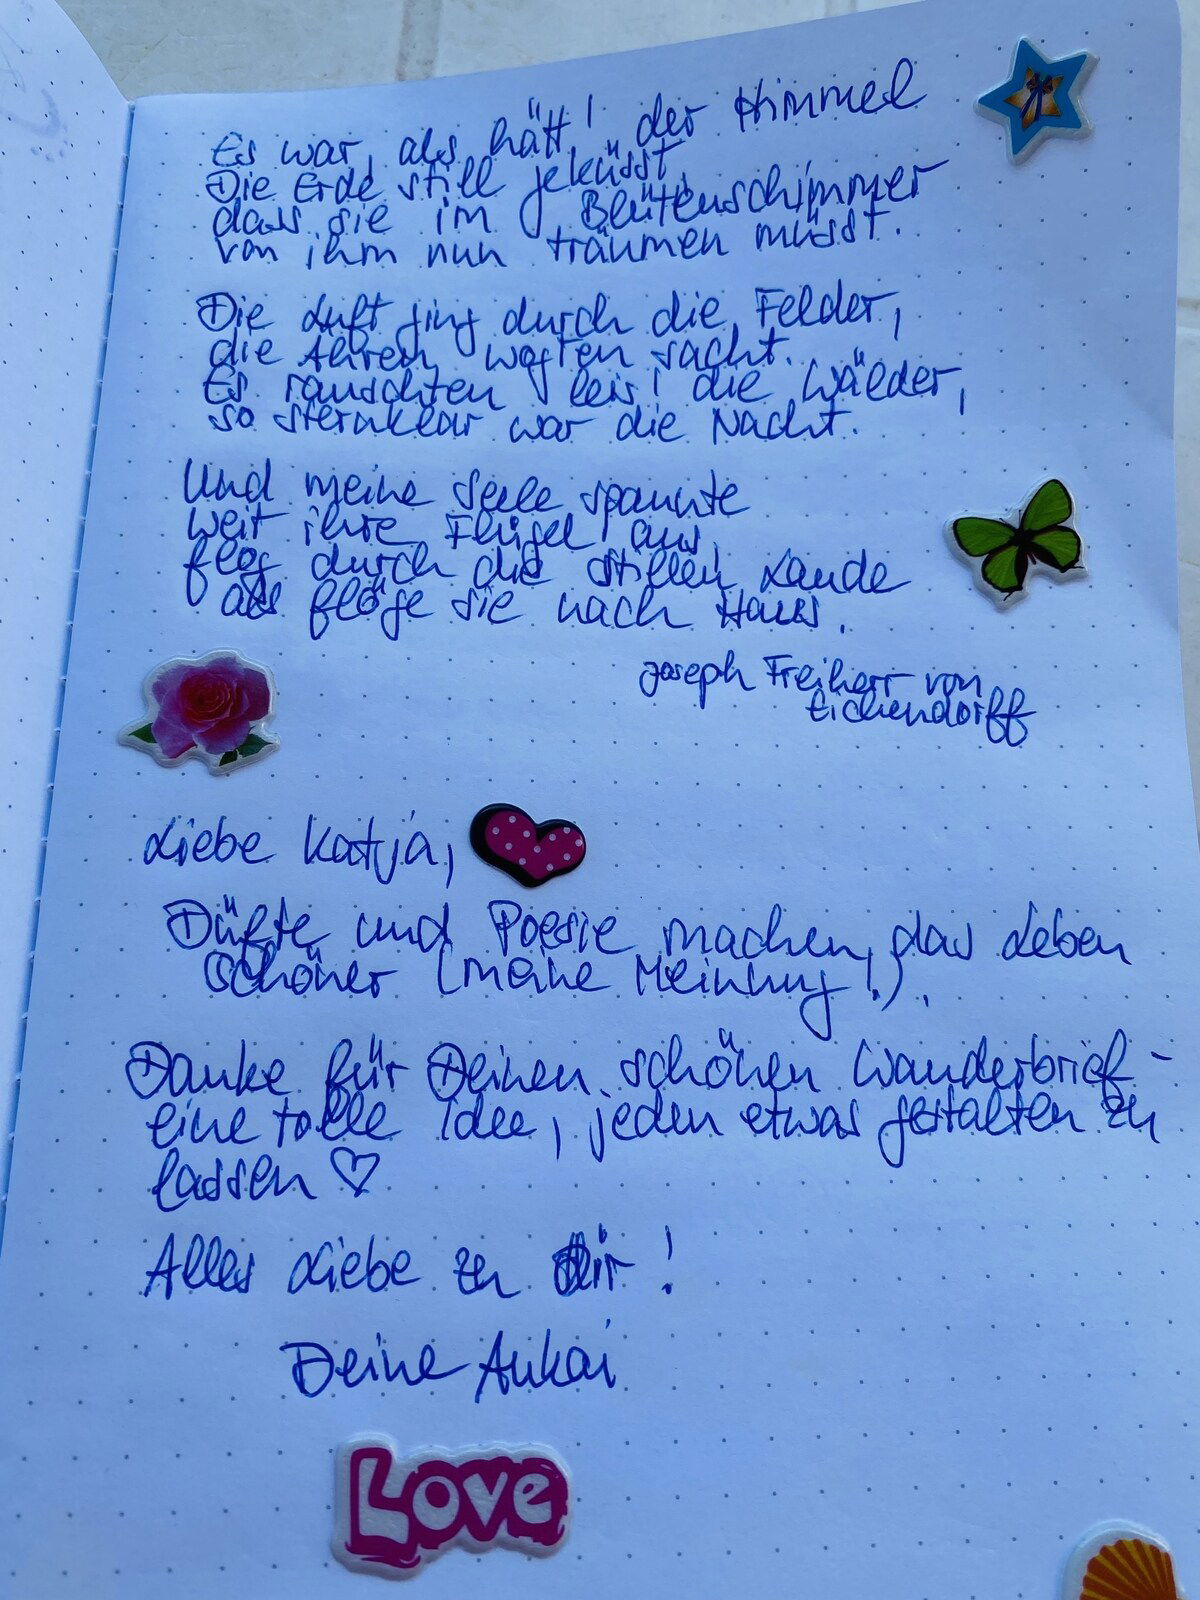 Es war, als hätt' der Himmel
Die Erde still geküsst,
dass sie im Blütenschimmer
von ihm nun träumen müsst.
Die Luft ging durch die Felder,
die Ähren wogten sacht.
Es rauschten leis' die Wälder,
so sternklar war die Nacht.
Und meine Seele spannte
weit ihre Flügel aus,
flog durch die stillen Lande
als flöge sie nach Haus.
Joseph Freiherr von
Eichendorff
Liebe Katja,
Düfte und Poesie machen das Leben
schöner (meine Meinung!).
Danke für Deinen schönen Wanderbrief -
eine tolle Idee, jeden etwas gestalten zu
lassen ♡
Alles Liebe zu Dir!
Deine Ankai
Love